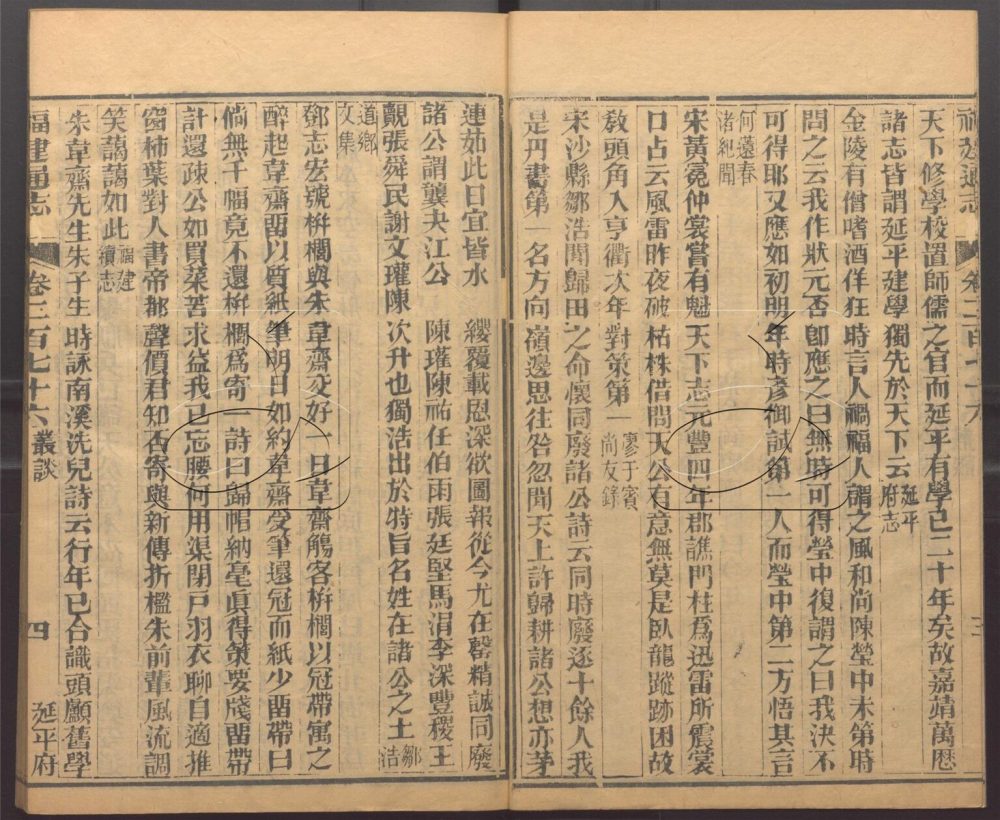 福建通志 卷二百七十六 三
天下修學校置師儒之官而延平有學已二十年矣故嘉靖萬曆
諸志皆謂延平建學獨先於天下云延平府志
金陵有僧嗜酒佯狂時言人禍福人謂之風和尚陳瑩中未第時
問之云我作狀元否卽應之曰無時可得瑩中復謂之曰我決不
可得耶又應如初明年時彥御試第一人而瑩中第二方悟其言
何薳春渚紀聞
宋黃冕仲裳嘗有魁天下志元豐四年郡譙門柱爲迅雷所震裳
口占云風雷昨夜破枯株借問天公有意無莫是臥龍蹤跡困故
敎頭角入亨衢次年對策第一廖于賓尚友錄
宋沙縣鄒浩聞歸田之命懷同廢諸公詩云同時廢逐十餘人我
是丹書第一名方向嶺邊思往咎忽聞天上許歸耕諸公想亦茅
連茹此日宜皆水 纓覆載恩深欲圖報從今尤在罄精誠同廢
諸公謂龔夬江公 陳瓘陳祐任伯雨張廷堅馬涓李深豐稷王
覿張舜民謝文瓘陳 次升也獨浩出於特旨名姓在諸公之土鄒浩
道鄉文集
鄧志宏號栟櫚與朱韋齋交好一日韋齋觴客栟櫚以冠帶寓之
醉起韋齋畱以質紙筆明日如約韋齋受筆還冠而紙少畱帶曰
倘無千幅竟不還栟櫚爲寄一詩曰歸帽納毫眞得策要牋畱帶
計還疎公如買菜苦求益我已忘腰何用渠閉戸羽衣聊自適推
窗柿葉對人書帝都聲價君知否寄與新傳折檻朱前輩風流調
笑藹藹如此福建續志
朱韋齋先生朱子生時詠南溪洗兒詩云行年已合識頭顱舊學
福建通志 卷二百七十六 叢談 四 延平府